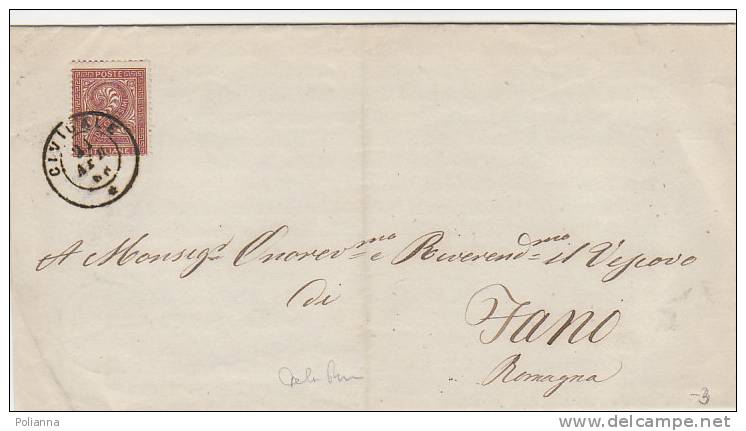 POSTE
CIVIDALE
A Monsigr. Onorevmo e Riverendmo il Vescovo
di
Fano
Romagna
-3
Polianna
www.delcampe.net